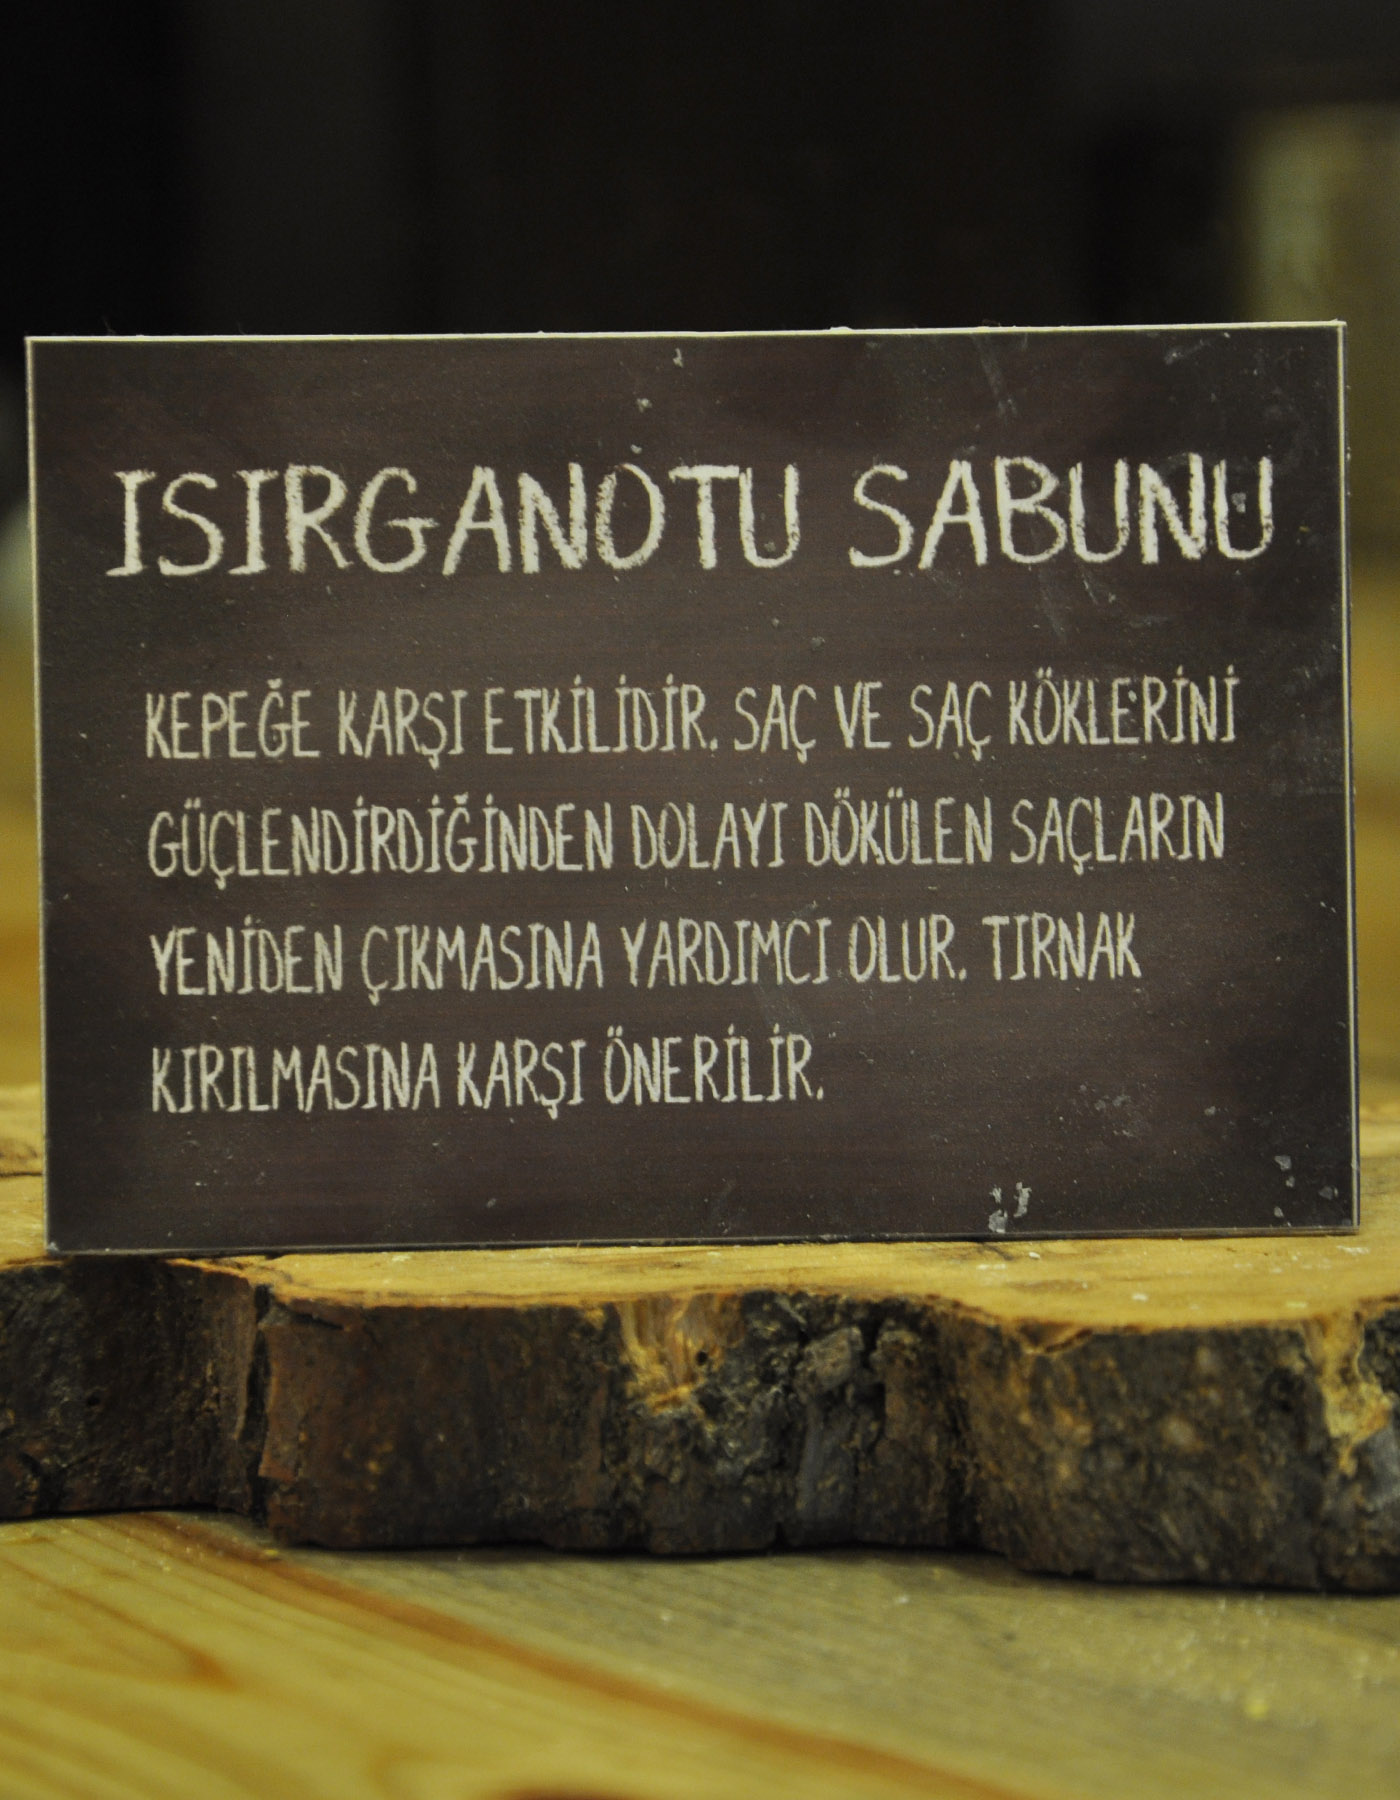 ISIRGANOTU SABUNU
KEPEĞE KARŞI ETKİLİDİR. SAÇ VE SAÇ KÖKLERİNİ
GÜÇLENDİRDİĞİNDEN DOLAYI DÖKÜLEN SAÇLARIN
YENİDEN ÇIKMASINA YARDIMCI OLUR. TIRNAK
KIRILMASINA KARŞI ÖNERİLİR.